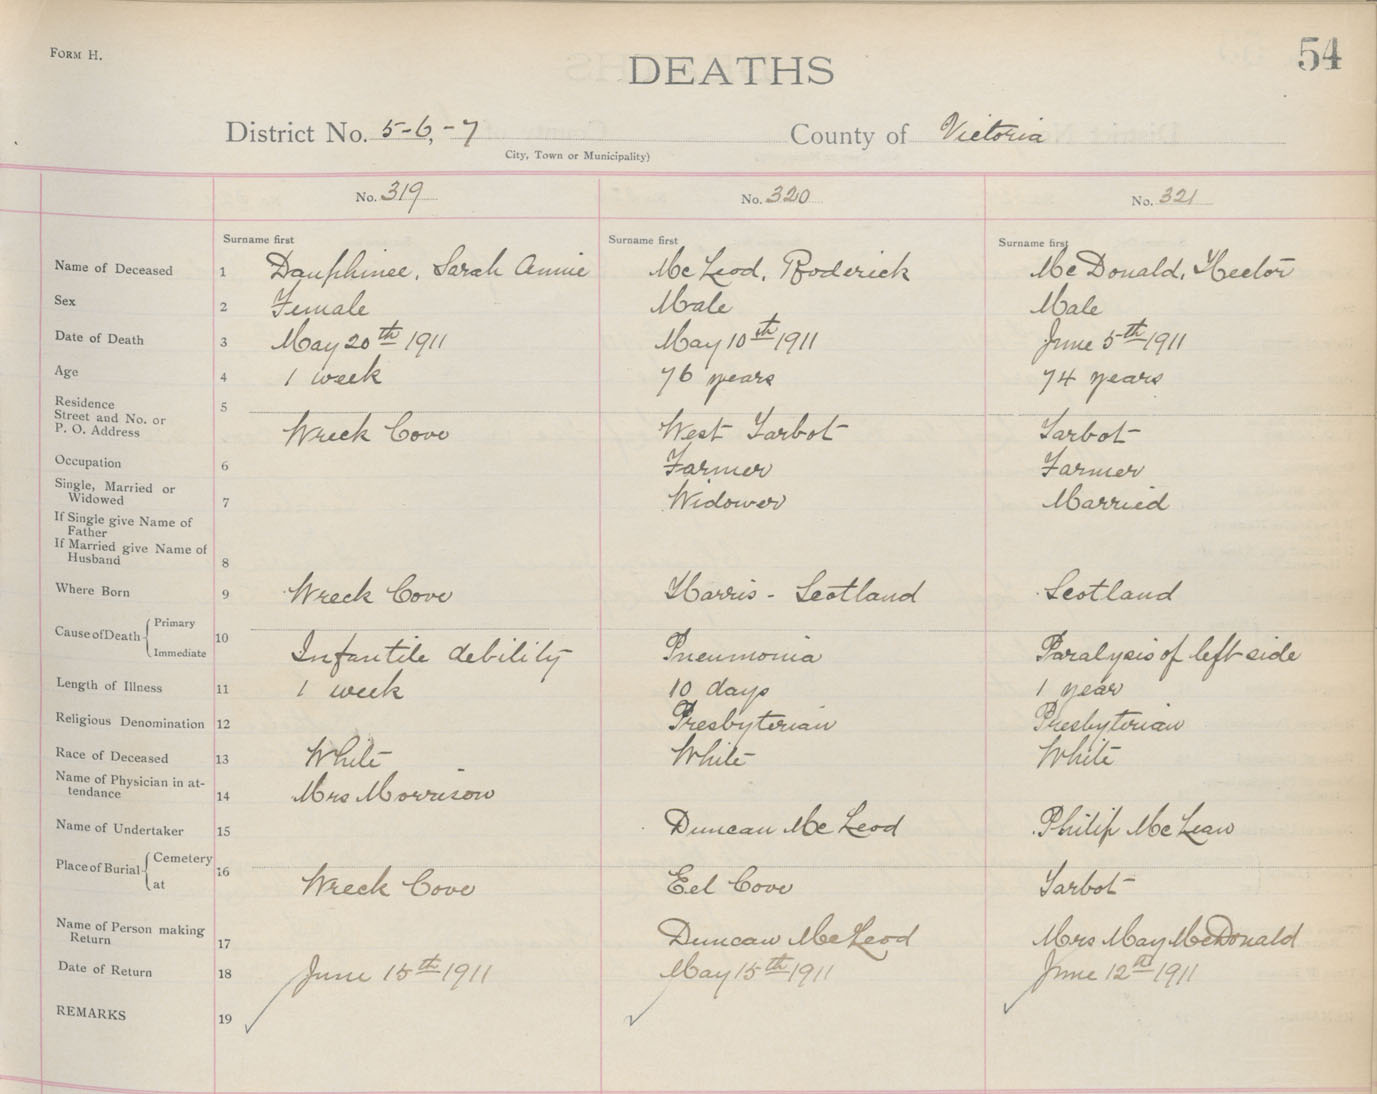 FORM H.
54
DEATHS
District No. 5-6,-7 County of Victoria
City, Town or Municipality)
No. 319 No. 320 No. 321
Surname first Surname first Surname first
Name of Deceased 1 Dauphinee, Sarah Annie Mc Leod, Roderick Mc Donald, Hector
Sex 2 Female Male Male
Date of Death 3 May 20th 1911 May 10th 1911 June 5th 1911
Age 4 1 week 76 years 74 years
Residence 5
Street and No. or
P. O. Address Wreck Cove West Tarbot Tarbot
Occupation 6 Farmer Farmer
Single, Married or
Widowed 7 Widower Married
If Single give Name of
Father
If Married give Name of
Husband 8
Where Born 9 Wreck Cove Harris - Scotland Scotland
Cause of Death Primary
10
Immediate Infantile debility Pneumonia Paralysis of left side
Length of Illness 11 1 week 10 days 1 year
Religious Denomination 12 Presbyterian Presbyterian
Race of Deceased 13 White White White
Name of Physician in at-
tendance 14 Mrs Morrison
Name of Undertaker 15 Duncan Mc Leod Philip Mc Lean
Place of Burial Cemetery
16
at Wreck Cove Eel Cove Tarbot
Name of Person making
Return 17 Duncan McLeod Mrs May McDonald
Date of Return 18 June 15th 1911 May 15th 1911 June 12th 1911
REMARKS 19